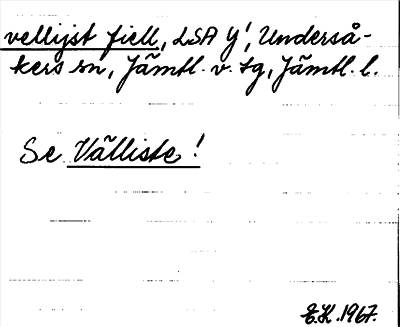 vellijst fiell, LSA Y', Underså-
kers sn, Jämtl. v. tg, Jämtl. l.
Se Välliste!
E.K. 1967.